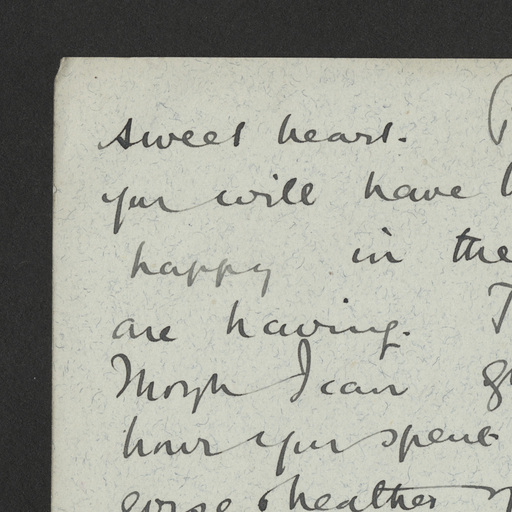 sweet heart.
you will have
happy in the
are having.
I can
hour you spent
gorse & heather